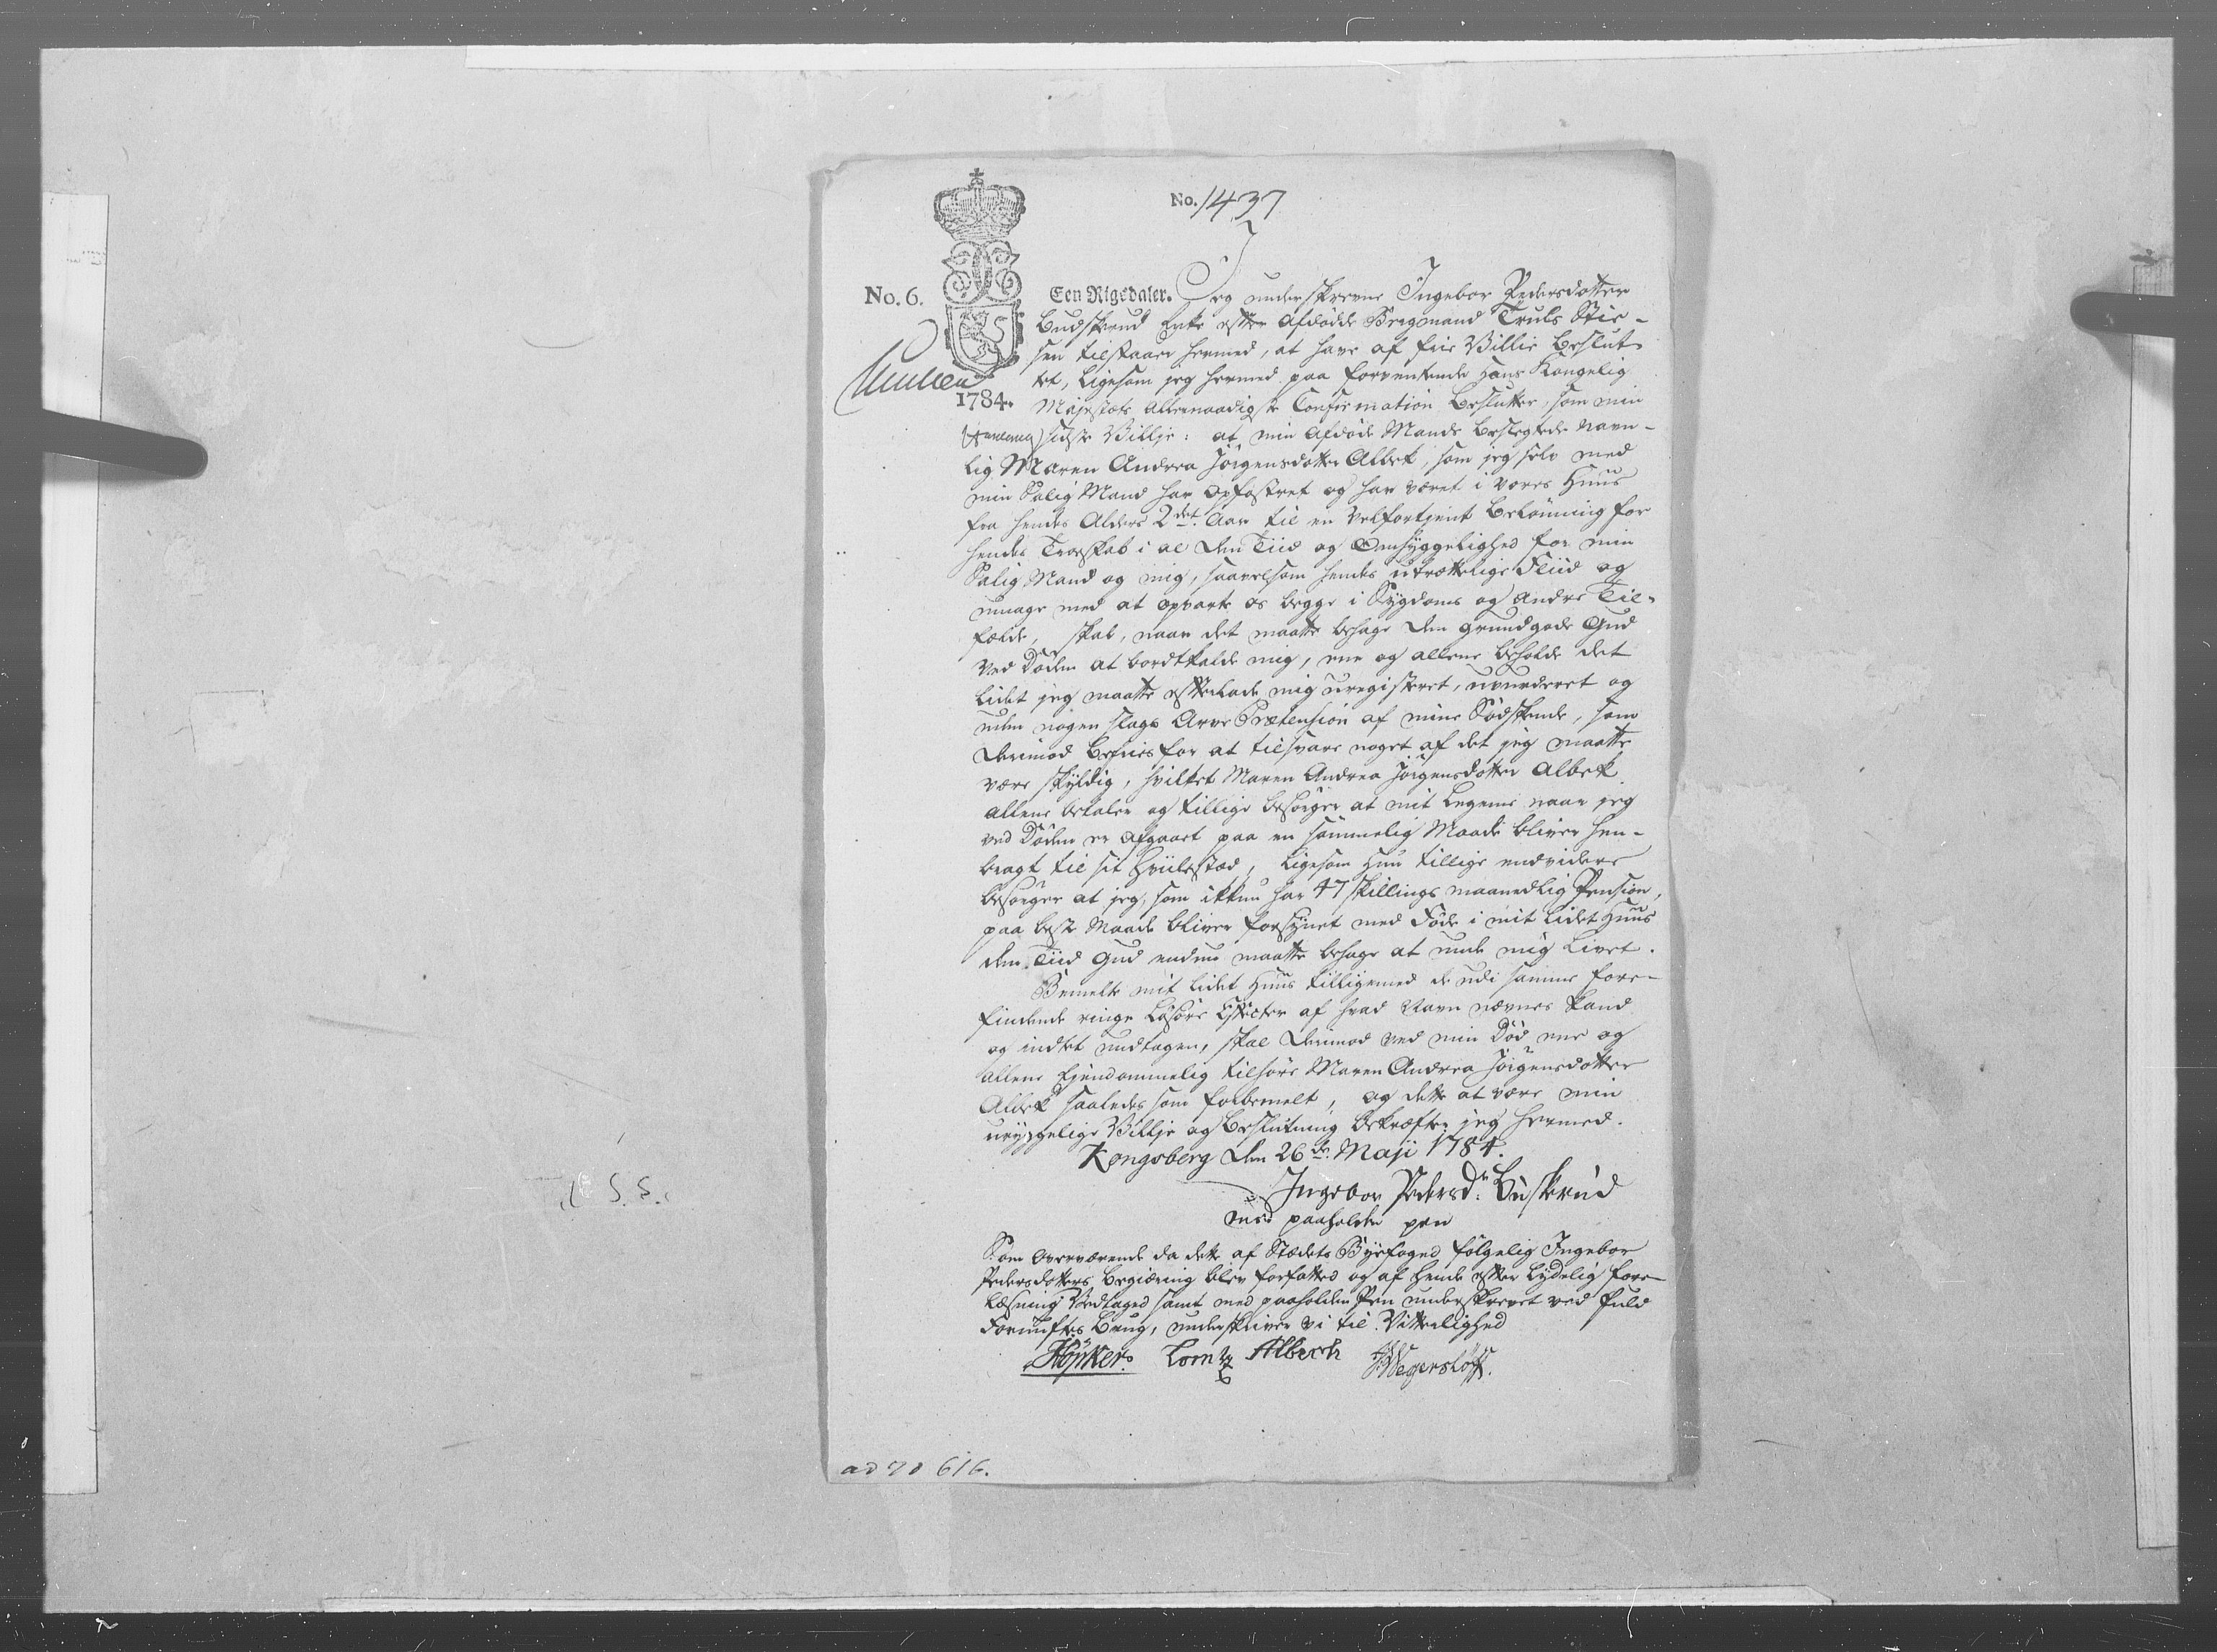 No. 1437
No. 6.
Een Rigsdaler. Jeg underskrevne Ingebor Pedersdotter
Budskrud Enke efter afdøde Bergmand Truls Stie-
sen tilstaaer hermed, at have af frie Villie beslut-
tet, ligesom jeg hermed paa forventende Hans Kongelig
1784. Majestæts allernaadigste Confirmation beslutter, som min
sidste Villje: at min afdøde Mands beslegtede navn-
lig Maren Andrea Jörgensdotter Albek, som jeg selv med
min Salig Mand har opfostret og har været i vores Huus
fra hendes Alders 2det Aar til en velfortjent Belönning for
hendes Troeskab i al den Tiid og Omhyggelighed for min
Salig Mand og mig, saavelsom hendes utrættelige Fliid og
umage med at opvarte os begge i Sygdoms og andre Til-
fælde, skal, naar det maatte behage den grundgode Gud
ved Döden at bordtkalde mig, ene og allene beholde det
lidet jeg maatte efterlade mig uregisteret, uvurderet og
uden nogen slags Arve Prætension af mine Södskende, som
derimod befries for at tilsvare noget af det jeg maatte
være skyldig, hvilket Maren Andrea Jörgensdotter Albek
allene betaler og tillige besörger at mit Legeme naar jeg
ved Döden er afgaaet paa en sömmelig Maade bliver hen-
bragt til sit Hviilestæd, ligesom hun tillige endvidere
besörger at jeg, som ikkun har 47 skillings maanedlig Pension,
paa beste Maade bliver forsynet med Föde i mit lidet Huus
den Tiid Gud endnu maatte behage at unde mig Livet.
Bemelte mit lidet Huus tilligemed de udi samme fore-
findende ringe Lösöre Effecter af hvad Navn nævnes kand
og indtet undtagen, skal derimod ved min Död ene og
allene Ejendommelig tilhöre Maren Andrea Jörgensdotter
Albek saaledes som forbemelt, og dette at være min
uryggelige Villje og Beslutning bekræfter jeg hermed.
Kongsberg den 26de Maji 1784.
Ingebor Pedersdr: Buskrud
med paaholden pen
Som overværende da dette af Stædets Byefoged fölgelig Ingebor
Pedersdotters Begiæring blev forfatted og af hende efter lydelig fore-
læsning Vedtaged samt med paaholden Pen underskrevet ved fuld
Fornufts Brug, underskriver vi til Vitterlighed
Höyker. Lorntz Albech JWegerslöff.
ad No 616.